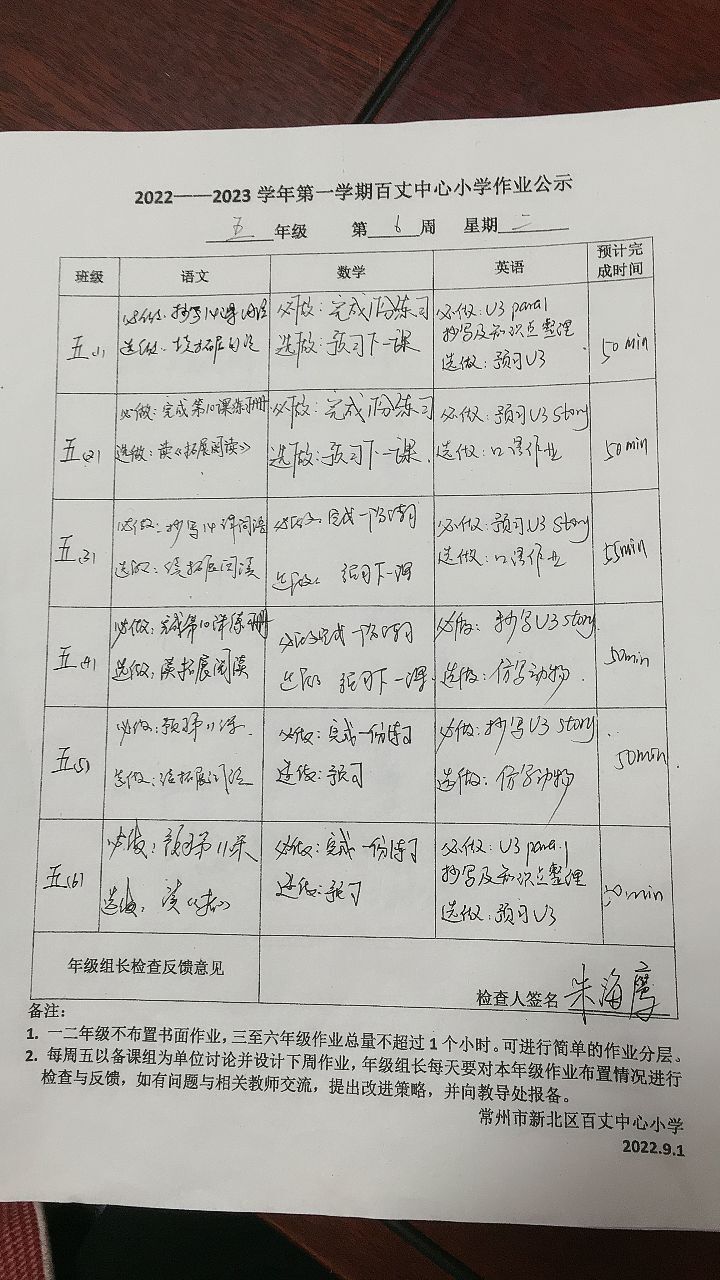 2022——2023 学年第一学期百丈中心小学作业公示
五 年级 第 6 周 星期 二
班级 语文 数学 英语 预计完成时间
五(1)
必做:抄写14课词语
选做:读拓展阅读
必做:完成1份练习
选做:预习下一课
必做:U3 para1
抄写及知识点整理
选做:预习U3
50min
五(2)
必做:完成第10课练习册
选做:读《拓展阅读》
必做:完成1份练习
选做:预习下一课.
必做:预习U3 Story
选做:口语作业
50min
五(3)
必做:抄写14课词语
选做:读拓展阅读
必做:完成一份练习
选做:预习下一课
必做:预习U3 Story
选做:口语作业
55min
五(4)
必做:完成第10课练习册
选做:读拓展阅读
必做:完成一份练习
选做:预习下一课.
必做:抄写U3 Story.
选做:仿写动物.
50min
五(5)
必做:预习第11课.
选做:读拓展阅读
必做:完成一份练习
选做:预习
必做:抄写U3 Story
选做:仿写动物
50min.
五(6)
必做:预习第11课
选做:读《拓》
必做:完成一份练习
选做:预习
必做:U3 para1
抄写及知识点整理
选做:预习U3
50min
年级组长检查反馈意见
检查人签名 朱海
备注:
1. 一二年级不布置书面作业,三至六年级作业总量不超过 1 个小时。可进行简单的作业分层。
2. 每周五以备课组为单位讨论并设计下周作业,年级组长每天要对本年级作业布置情况进行
检查与反馈,如有问题与相关教师交流,提出改进策略,并向教导处报备。
常州市新北区百丈中心小学
2022.9.1